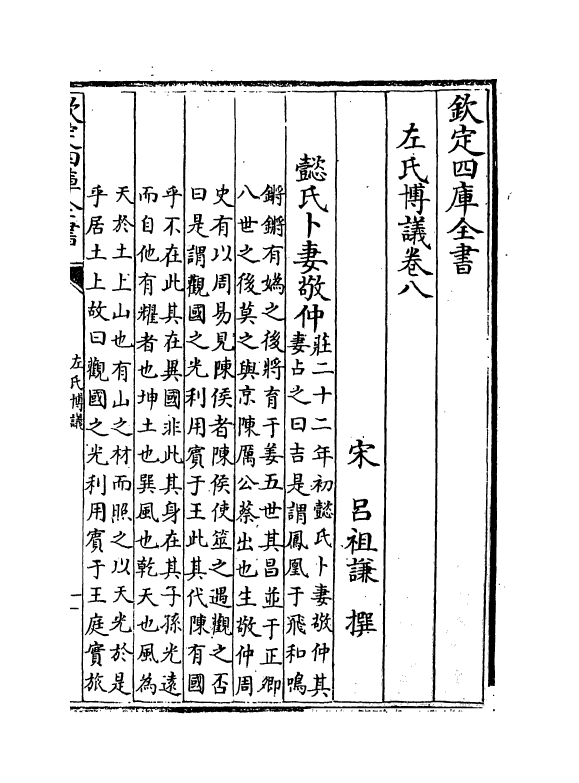 欽定四庫全書
左氏博議卷八
宋 呂祖謙 撰
懿氏卜妻敬仲
莊二十二年初懿氏卜妻敬仲其
妻占之曰吉是謂鳳凰于飛和鳴
鏘鏘有媯之後將育于姜五世其昌並于正卿
八世之後莫之與京陳厲公蔡出也生敬仲周
史有以周易見陳侯者陳侯使筮之遇觀之否
曰是謂觀國之光利用賓于王此其代陳有國
乎不在此其在異國非此其身在其子孫光遠
而自他有耀者也坤土也巽風也乾天也風為
天於土上山也有山之材而照之以天光於是
乎居土上故曰觀國之光利用賓于王庭實旅
欽定四庫全書
左氏博議
一